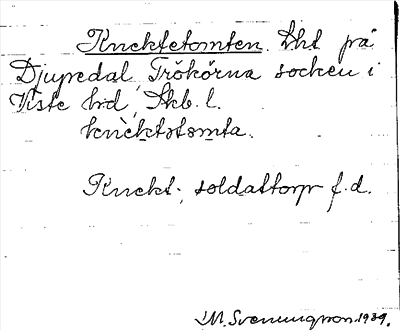 Knektetomten. Lht på
Djupedal, Trökörna socken i
Viste hd, Skb. l.
knèktətom̀ta.
Knekt-, soldattorp f.d.
M. Svenungson. 1939.